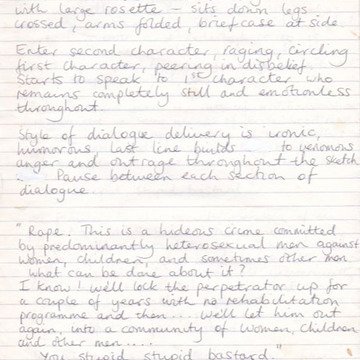 with large rosette - sits down legs
crossed, arms folded, briefcase at side
Enter second character, raging, circling
first character, peering in disbelief.
Starts to speak to 1st character who
remains completely still and emotionless
throughout.
Style of dialogue delivery is ironic,
humorous, last line builds to venomous
anger and outrage throughout the sketch.
Pause between each section of
dialogue.
"Rape. This is a hideous crime committed
by predominantly heterosexual men against
women, children, and sometimes other men
What can be done about it?
I know! We'll lock the perpetrator up for
a couple of years with no rehabilitation
programme and then.... We'll let him out
again, into a community of women, children
and other men....
You stupid, stupid bastard."